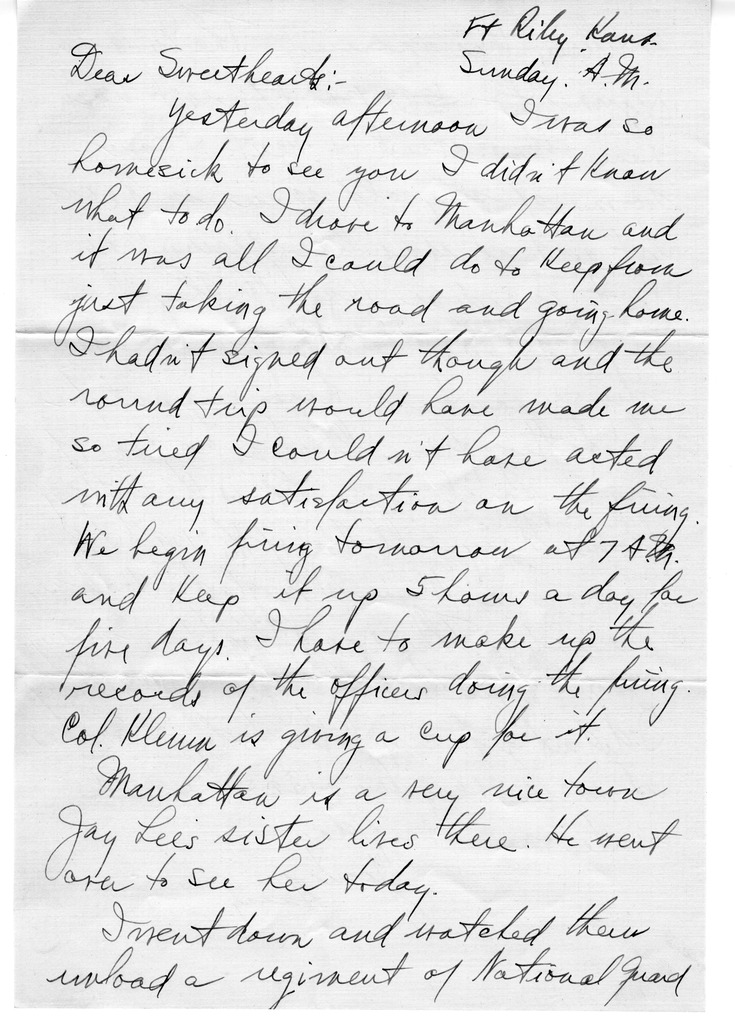 Ft Riley Kans.
Sunday. A.M.
Dear Sweethearts:-
Yesterday afternoon I was so
homesick to see you I didn't know
what to do. I drove to Manhattan and
it was all I could do to keep from
just taking the road and going home.
I hadn't signed out though and the
round trip would have made me
so tired I couldn't have acted
with any satisfaction on the firing.
We begin firing tomorrow at 7 A.M.
and keep it up 5 hours a day for
five days. I have to make up the
records of the officers doing the firing.
Col. Klemm is giving a cup for it.
Manhattan is a very nice town
Jay Lee's sister lives there. He went
over to see her today.
I went down and watched them
unload a regiment of National Guard